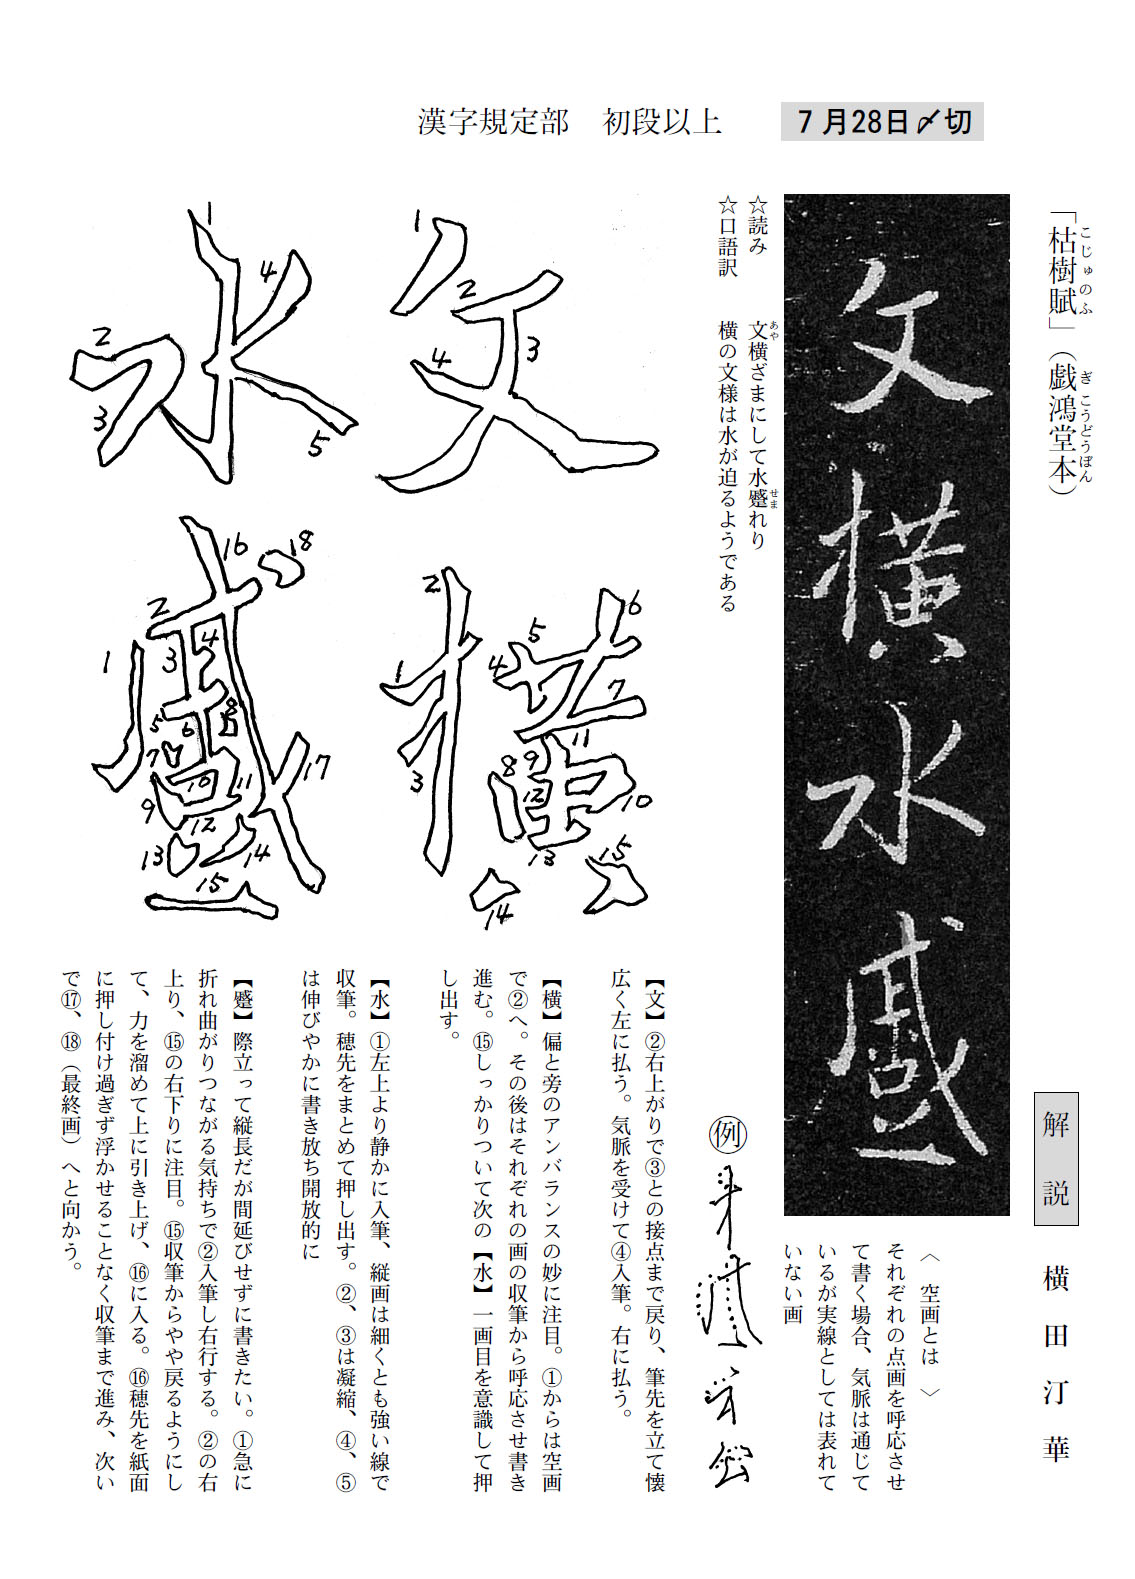 漢字規定部　初段以上
7月28日〆切
「枯樹賦」（戯鴻堂本）
こじゅのふ
ぎこうどうぼん
解説
横田汀華
文横水蹙
☆読み　文横ざまにして水蹙れり
あや
せま
☆口語訳　横の文様は水が迫るようである
〈　空画とは　〉
それぞれの点画を呼応させ
て書く場合、気脈は通じて
いるが実線としては表れて
いない画
例
文
1
2
3
4
横
1
2
3
4
5
6
7
8
9
10
11
12
13
14
15
水
1
2
3
4
5
蹙
1
2
3
4
5
6
7
8
9
10
11
12
13
14
15
16
17
18
【文】②右上がりで③との接点まで戻り、筆先を立て懐
広く左に払う。気脈を受けて④入筆。右に払う。
【横】偏と旁のアンバランスの妙に注目。①からは空画
で②へ。その後はそれぞれの画の収筆から呼応させ書き
進む。⑮しっかりついて次の【水】一画目を意識して押
し出す。
【水】①左上より静かに入筆、縦画は細くとも強い線で
収筆。穂先をまとめて押し出す。②、③は凝縮、④、⑤
は伸びやかに書き放ち開放的に
【蹙】際立って縦長だが間延びせずに書きたい。①急に
折れ曲がりつながる気持ちで②入筆し右行する。②の右
上り、⑮の右下りに注目。⑮収筆からやや戻るようにし
て、力を溜めて上に引き上げ、⑯に入る。⑯穂先を紙面
に押し付け過ぎず浮かせることなく収筆まで進み、次い
で⑰、⑱（最終画）へと向かう。